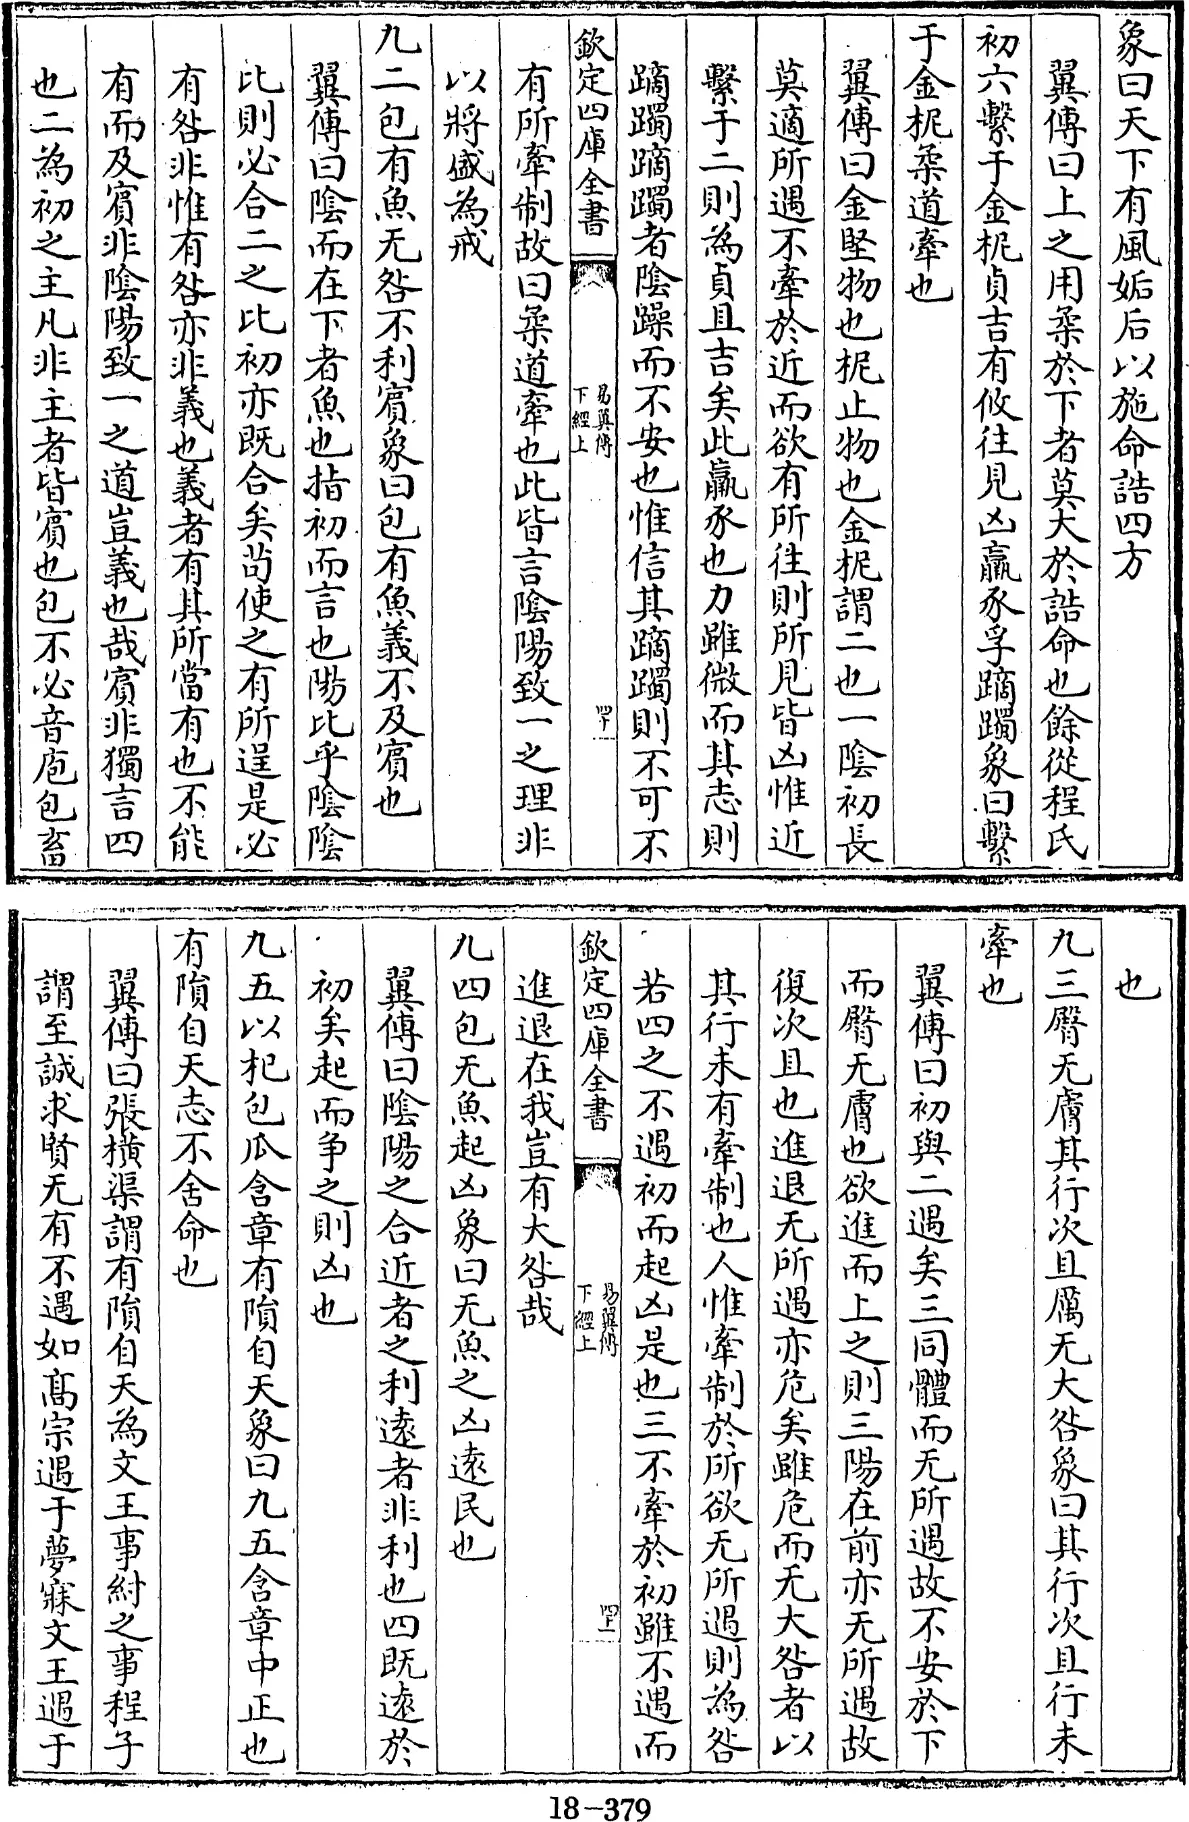 象曰天下有風姤后以施命誥四方
翼傳曰上之用柔於下者莫大於誥命也餘從程氏
初六繫于金柅貞吉有攸往見凶羸豕孚蹢躅象曰繫
于金柅柔道牽也
翼傳曰金堅物也柅止物也金柅謂二也一陰初長
莫適所遇不牽於近而欲有所往則所見皆凶惟近
繫于二則為貞且吉矣此羸豕也力雖微而其志則
蹢躅蹢躅者陰躁而不安也惟信其蹢躅則不可不
欽定四庫全書
易翼傳
下經上
四十
有所牽制故曰柔道牽也此皆言陰陽致一之理非
以將盛為戒
九二包有魚无咎不利賓象曰包有魚義不及賓也
翼傳曰陰而在下者魚也指初而言也陽比乎陰陰
比則必合二之比初亦既合矣茍使之有所逞是必
有咎非惟有咎亦非義也義者有其所當有也不能
有而及賓非陰陽致一之道豈義也哉賓非獨言四
也二為初之主凡非主者皆賓也包不必音庖包畜
也
九三臀无膚其行次且厲无大咎象曰其行次且行未
牽也
翼傳曰初與二遇矣三同體而无所遇故不安於下
而臀无膚也欲進而上之則三陽在前亦无所遇故
復次且也進退无所遇亦危矣雖危而无大咎者以
其行未有牽制也人惟牽制於所欲无所遇則為咎
若四之不遇初而起凶是也三不牽於初雖不遇而
欽定四庫全書
易翼傳
下經上
四十一
進退在我豈有大咎哉
九四包无魚起凶象曰无魚之凶遠民也
翼傳曰陰陽之合近者之利遠者非利也四既遠於
初矣起而争之則凶也
九五以杞包瓜含章有隕自天象曰九五含章中正也
有隕自天志不舍命也
翼傳曰張横渠謂有隕自天為文王事紂之事程子
謂至誠求賢无有不遇如髙宗遇于夢寐文王遇于
18-379